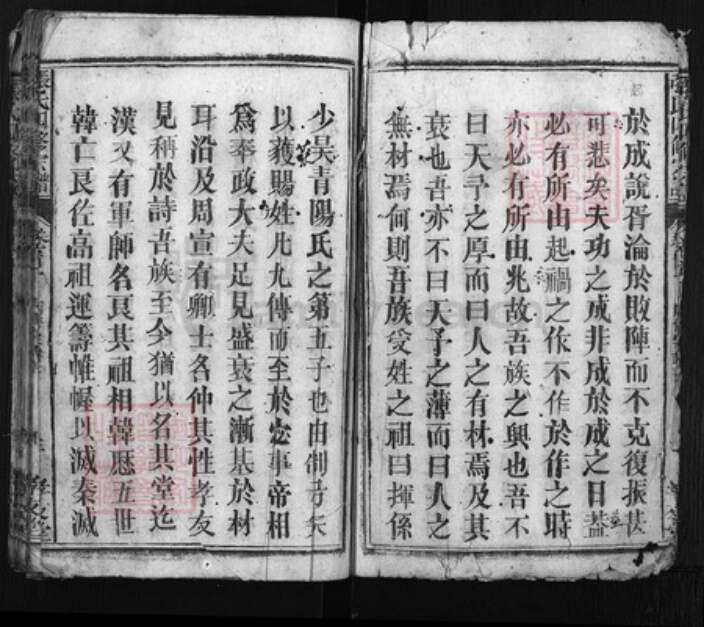 於成說胥淪於敗陣而不克復振甚
可悲矣夫功之成非成於成之日蓋
必有所由起禍之作不作於作之時
亦必有所由兆故吾族之興也吾不
曰天予之厚而曰人之有材焉及其
衰也吾亦不曰天予之薄而曰人之
無材焉何則吾族受姓之祖曰揮係
少吴青陽氏之第五子也由制弓矢
以獲賜姓凡九傳而至於老事帝相
爲奉政大夫足見盛衰之漸基於材
耳沿及周宣有卿士名仲其性孝友
見稱於詩吾族至今猶以名其堂迄
漢又有軍師名良其祖相韓歷五世
韓亡良佐高祖運籌帷幄以滅秦滅
張氏四修